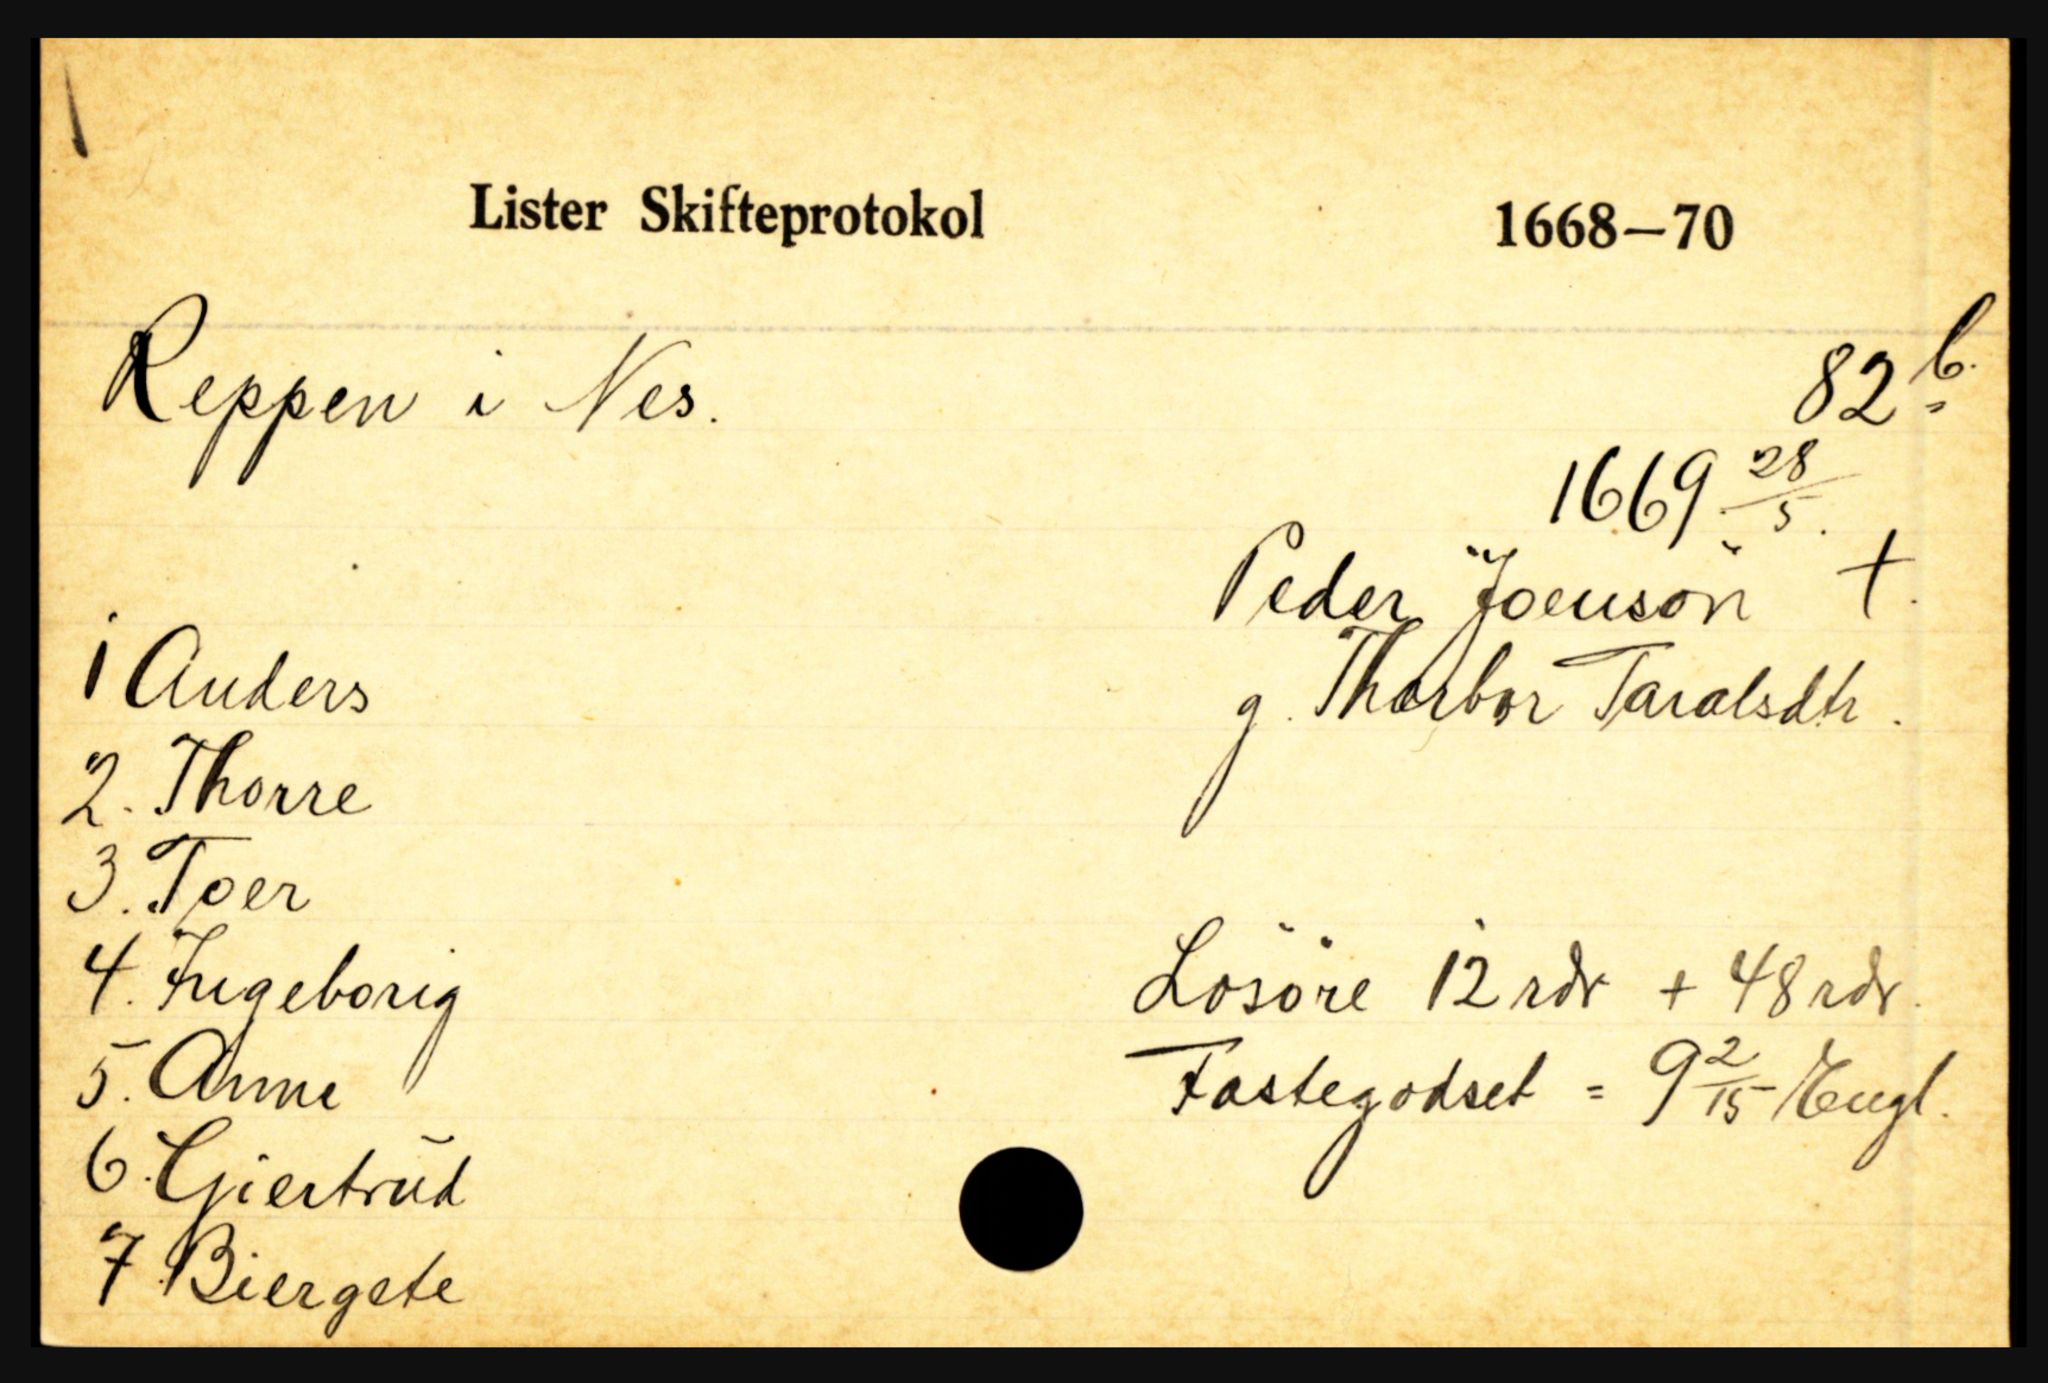 Lister Skifteprotokol 1668—70
Reppen i Nes. 82 b.
1669 28/5.
Peder Joensön +.
g. Thorbor Taralsdtr.
1 Anders
2. Thorre
3. Toer
4. Ingeborig
5. Anne
6. Giertrud
7. Biergete
Lösöre 12 rdr + 48 rdr.
Fastegodset = 9 2/15 Engl.